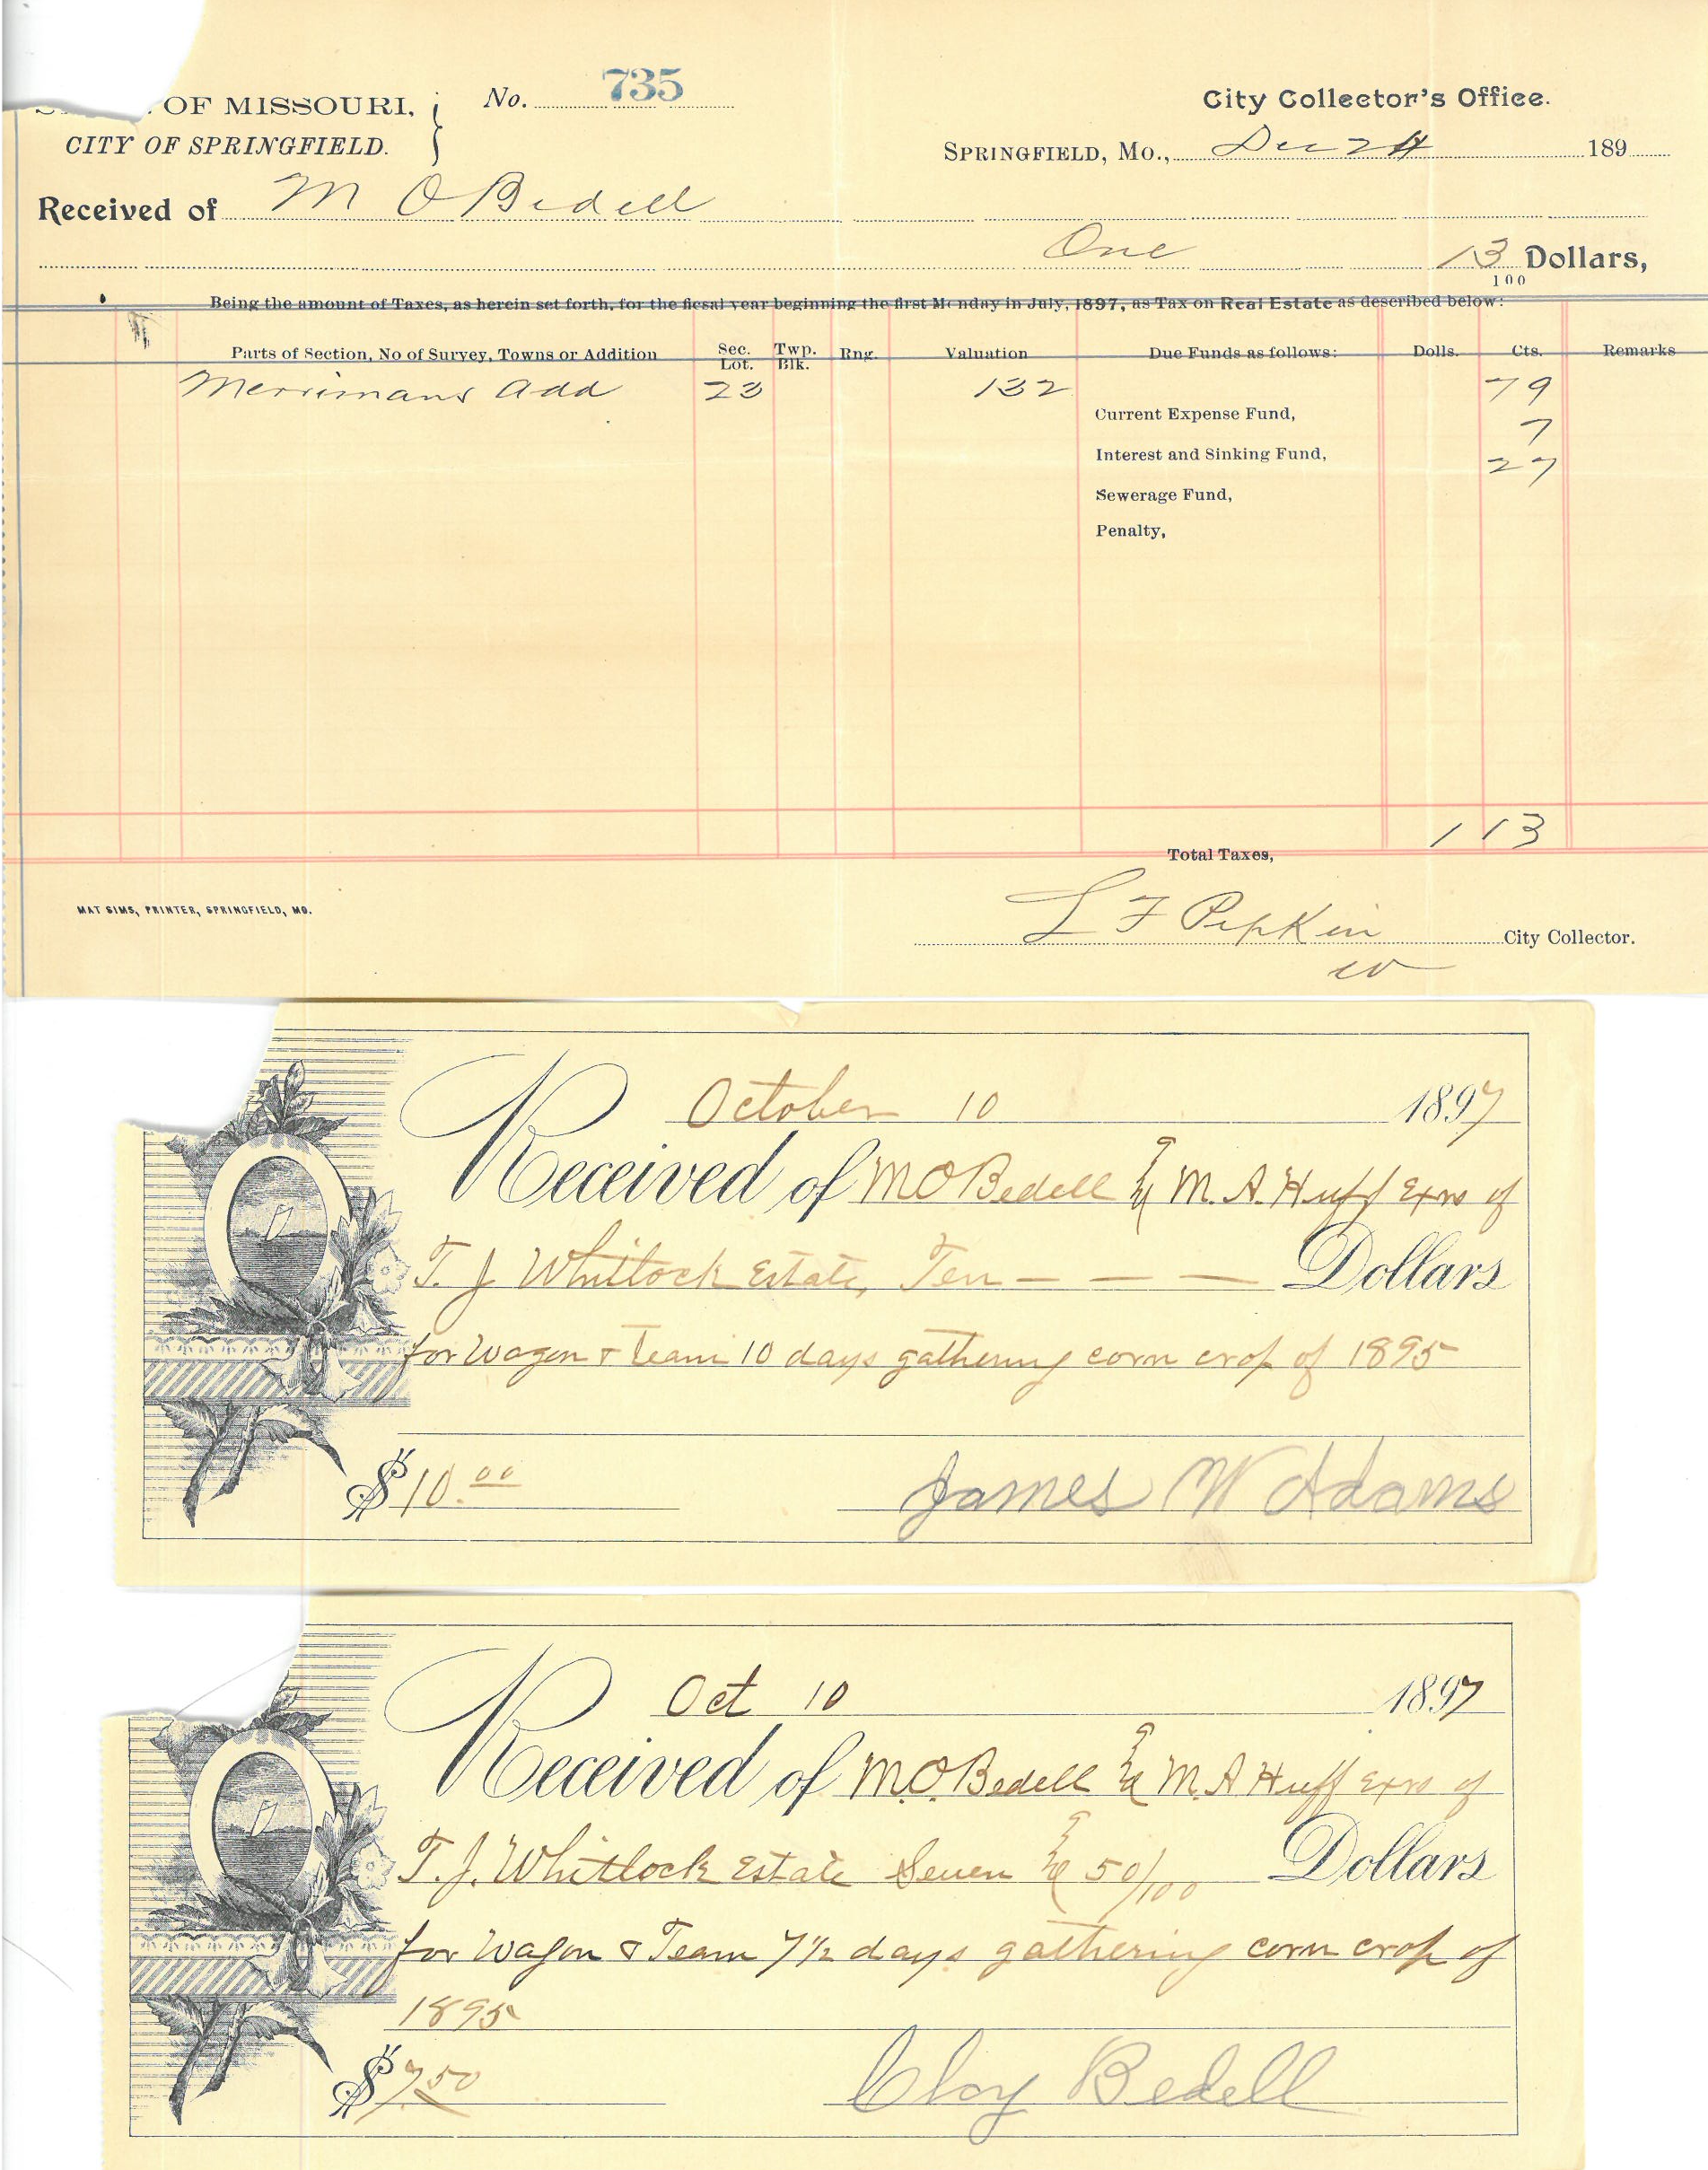 OF MISSOURI,
CITY OF SPRINGFIELD.
No. 735
City Collector's Office.
SPRINGFIELD, MO., Dec 24 189
Received of M O Bedell
One 13 Dollars,
100
Being the amount of Taxes, as herein set forth, for the fiscal year beginning the first Monday in July, 1897, as Tax on Real Estate as described below:
Parts of Section, No of Survey, Towns or Addition Sec. Lot. Twp. Blk. Rng. Valuation Due Funds as follows: Dolls. Cts. Remarks
Merrimans Add 23 132 79
Current Expense Fund, 7
Interest and Sinking Fund, 27
Sewerage Fund,
Penalty,
Total Taxes, 1 13
MAT SIMS, PRINTER, SPRINGFIELD, MO.
L F Pipkin City Collector.
October 10 1897
Received of M O Bedell & M. A. Huff Exrs of
T. J Whitlock Estate, Ten — — — Dollars
for Wagon & Team 10 days gathering corn crop of 1895
$10.00 James W Adams
Oct 10 1897
Received of M.O. Bedell & M. A Huff Exrs of
T. J. Whitlock Estate Seven & 50/100 Dollars
for Wagon & Team 7 1/2 days gathering corn crop of
1895
$7.50 Cloy Bedell